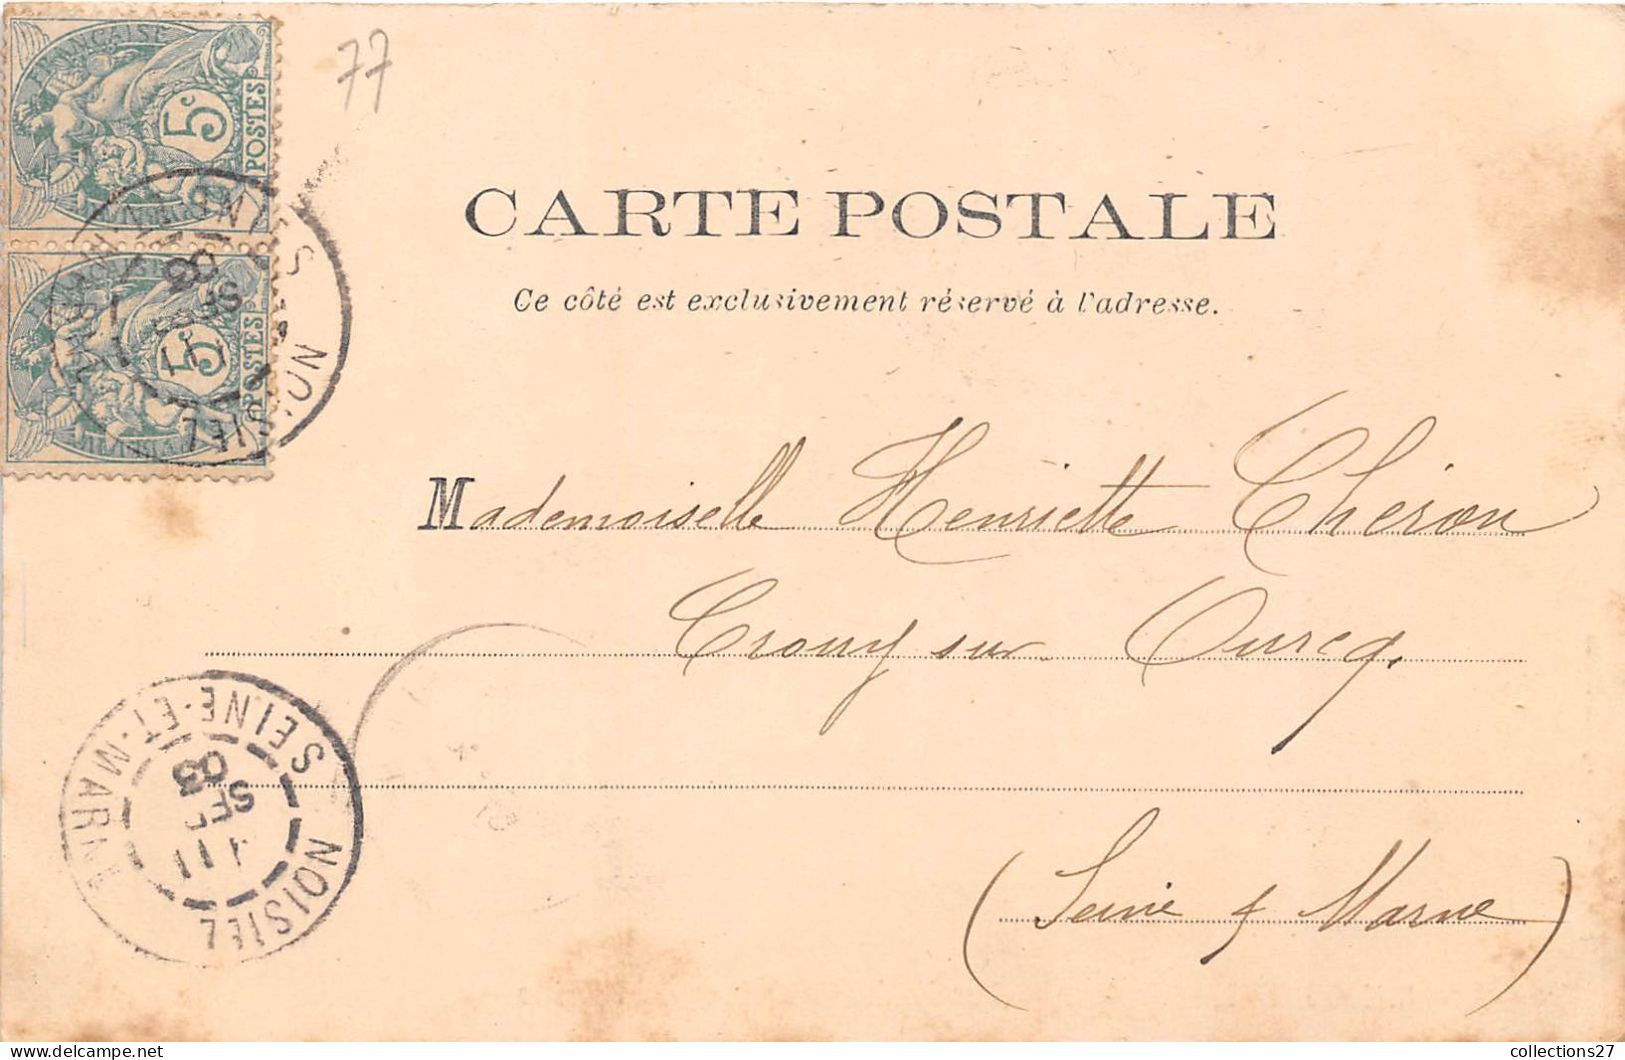 77
FRANÇAISE
5c
POSTES
5
POSTES
CARTE POSTALE
Ce côté est exclusivement réservé à l'adresse.
Mademoiselle Henriette Chéron
Crouy sur Ourcq.
(Seine & Marne)
NOISIEL
SEINE-ET-MARNE
11
SEPT
03
collections27